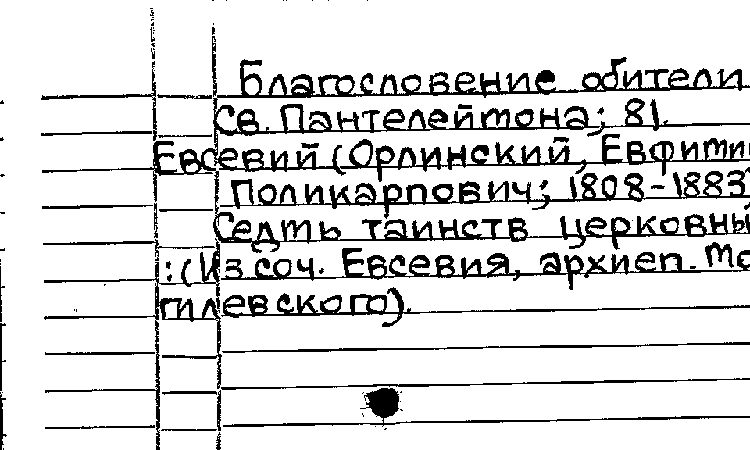 Благословение обители
Св. Пантелеймона; 81.
Евсевий (Орлинский, Евфими
Поликарпович; 1808-1883
Седмь таинств церковны
:(Из соч. Евсевия, архиеп. Мо
гилевского).